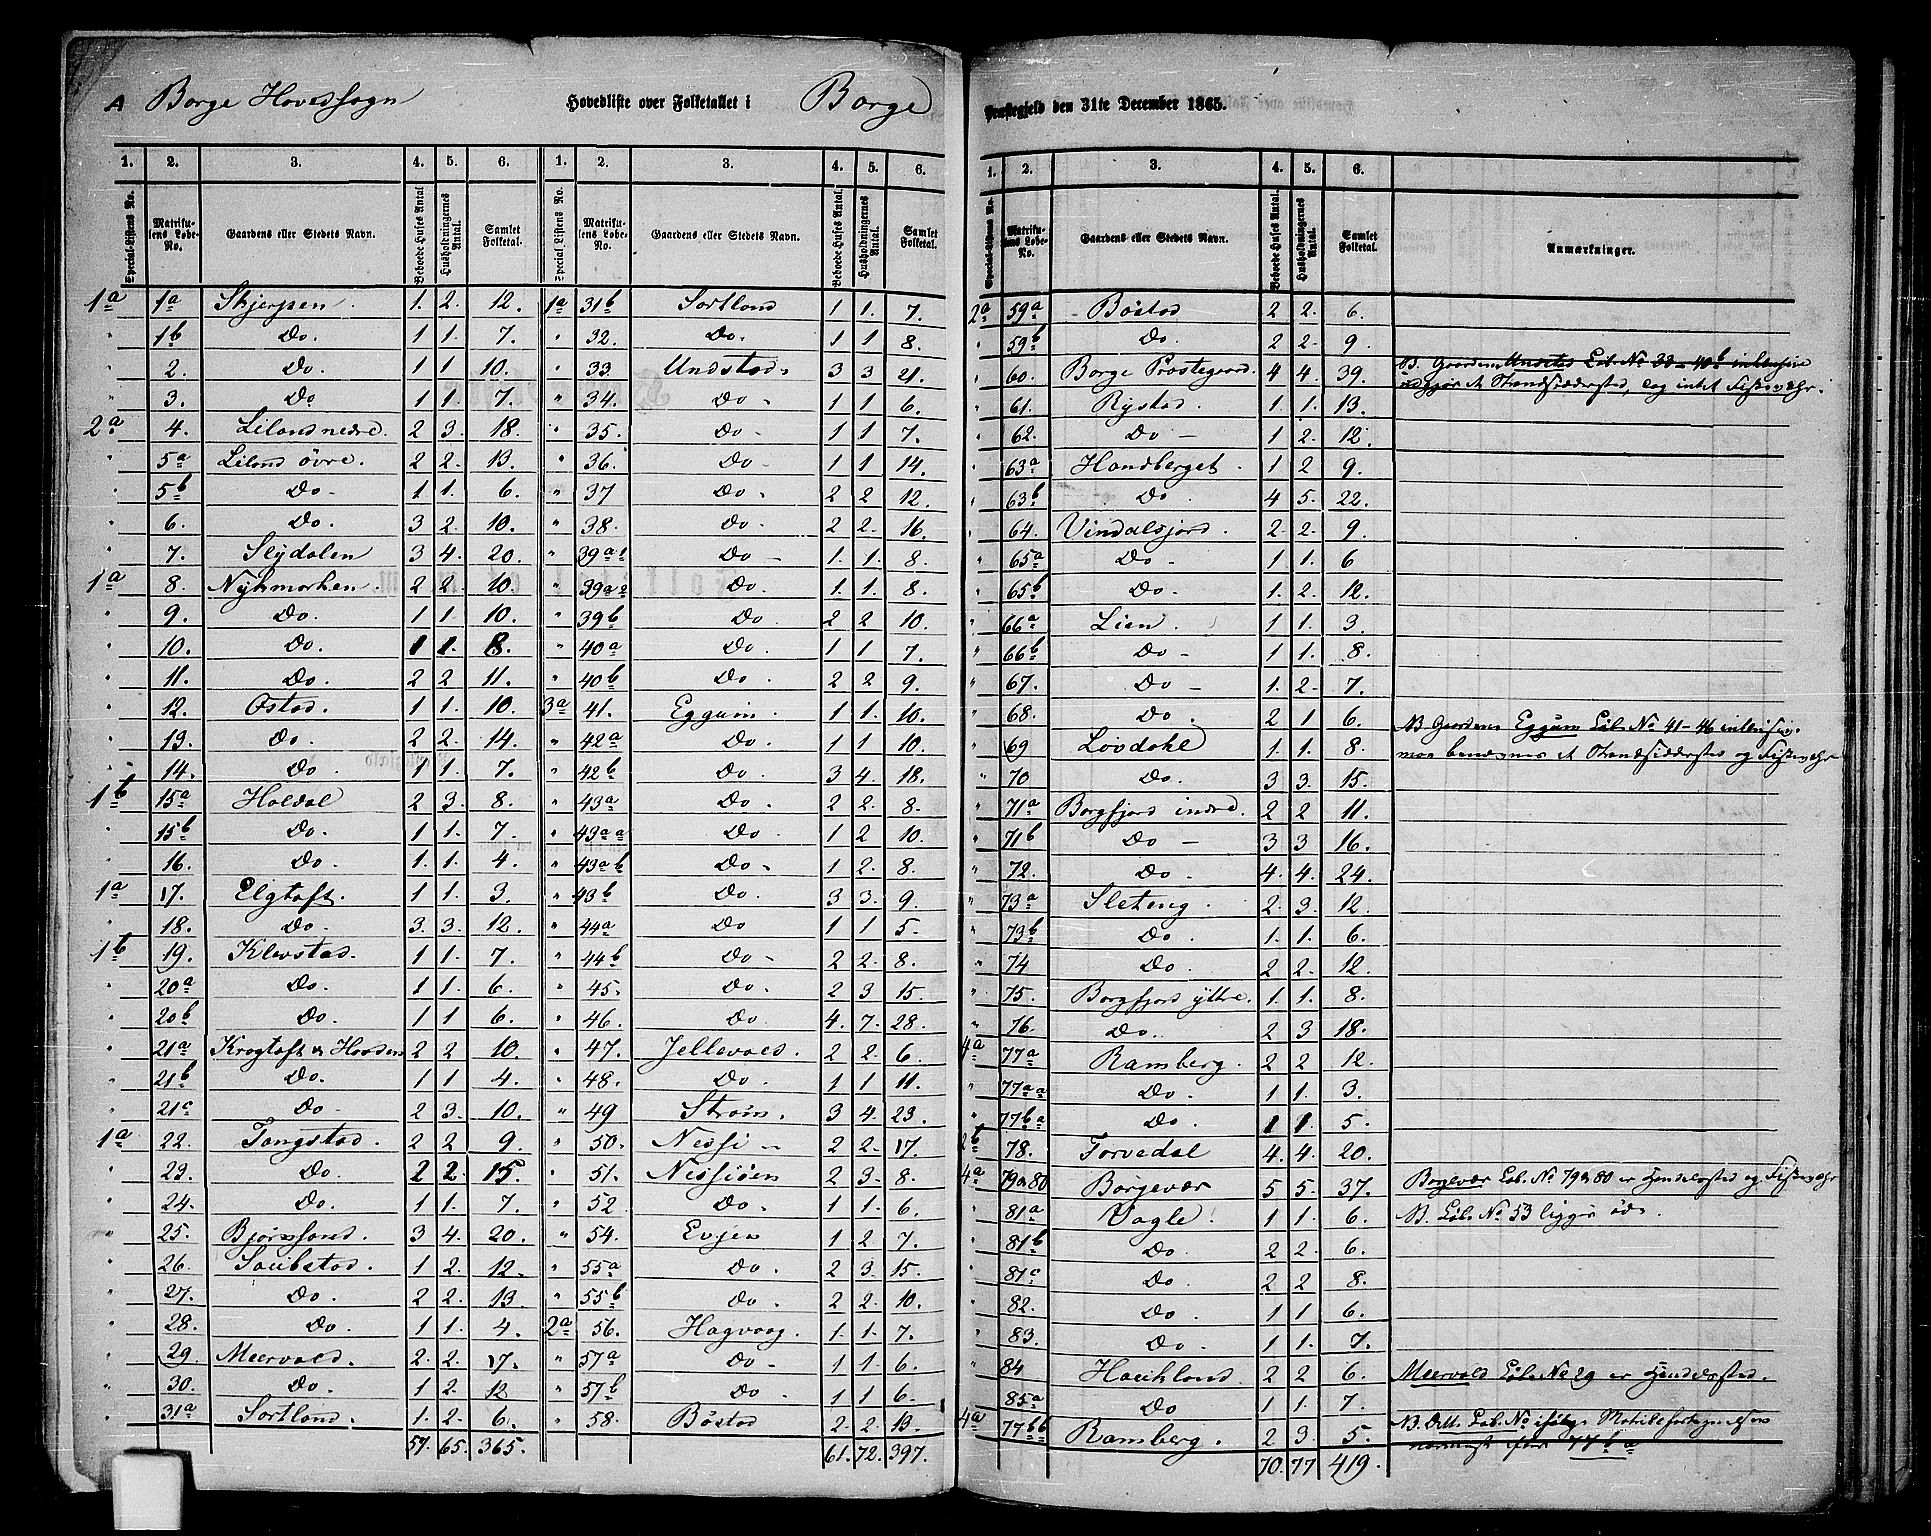 A Borge Hovedsogn Hovedliste over Folketallet i Borge Præstegjeld den 31te December 1865.
1. 2. 3. 4. 5. 6. 1. 2. 3. 4. 5. 6. 1. 2. 3. 4. 5. 6.
Special-Listens No. Matrikulens Løbe-No. Gaardens eller Stedets Navn. Beboede Huses Antal Husholdningernes Antal. Samlet Folketal. Special Listens No. Matrikulens Løbe-No. Gaardens eller Stedets Navn. Beboede Huses Antal. Husholdningernes Antal. Samlet Folketal. Special-Listens No. Matrikulens Løbe-No. Gaardens eller Stedets Navn. Beboede Huses Antal. Husholdningernes Antal. Samlet Folketal. Anmærkninger.
1a 1a Skjerpen 1. 2. 12. 1a 31b Sortland 1 1. 7. 2a 59a Bøstad 2 2. 6.
" 1b Do. 1 1. 7. " 32. Do. 1 1 8. " 59b Do. 2 2. 9.
" 2. Do. 1 1. 10. " 33. Undstad 3 3 21. " 60. Borge Præstegaard. 4 4. 39.
" 3. Do 1 1. 7. " 34. Do - 1 1 6. " 61. Rystad. 1. 1. 13.
2a 4. Liland nedre. 2 3. 18. " 35. Do - 1 1 7. " 62. Do - 1 2. 12.
" 5a Liland øvre. 2 2. 13. " 36. Do - 1 1 14. " 63a Handberget. 1 2 9.
" 5b Do - 1 1. 6. " 37 Do - 2 2 12. " 63b Do 4 5. 22.
" 6. Do. 3 2. 10. " 38. Do. 2 2. 16. " 64. Vindalsjord. 2 2. 9.
" 7. Slydalen 3 4. 20. " 39a1 Do - 1. 1. 8. " 65a Do - 1 1. 6
1a 8. Nykmarken. 2 2. 10. " 39a2 Do. 1. 1. 8. " 65b Do. 1. 2. 12.
" 9. Do. 1 1. 10. " 39b Do 2 2 10. " 66a Lien. 1 1. 3.
" 10. Do. 1 1. 8. " 40a Do. 1 1. 7. " 66b Do - 1 1. 8.
" 11. Do. 2 2 11. " 40b Do. 2 2 9. " 67. Do - 1. 2. 7.
" 12. Ostad. 1 1. 10. 3a 41. Eggum. 1 1. 10. " 68. Do. 2 1 6.
" 13. Do. 2 2. 14. " 42a Do. 1 1 10. " 69 Løvdahl 1. 1. 8.
" 14. Do. 1 1. 7. " 42b Do. 3 4. 18. " 70 Do. 3 3. 15.
1b 15a Haldal 2 3. 8. " 43a Do. 2 2. 8. " 71a Borgfjord indre. 2 2 11.
" 15b Do. 1 1. 7. " 43aa Do. 1 2 10. " 71b Do - 3 3 16.
" 16. Do. 1 1. 4. " 43ab Do - 1 2. 8. " 72. Do. 4. 4. 24.
1a 17. Elgtoft. 1 1. 3. " 43b Do. 3 3. 9. " 73a Sleteng. 2. 3. 12.
" 18. Do. 3. 3. 12. " 44a Do 1 1 5. " 73b Do. 1. 1. 6.
1b 19. Klevstad. 1 1. 7. " 44b Do - 2 2. 8. " 74 Do. 2 2. 12.
" 20a Do. 1 1. 6. " 45. Do. 2 3 15. " 75. Borgfjord yttre. 1. 1. 8.
" 20b Do. 1 1 6. " 46. Do 4. 7. 28. " 76. Do. 2 3 18.
" 21a 2 2 10. " 47. Jellevold. 2 2. 6. 4a 77a Ramberg. 2 2 12.
" 21b Do. 1 1 4. " 48. Do. 1 1 11. " 77aa Do. 1 1. 3.
" 21c Do - 2 3. 10. " 49 Strøm. 3 4. 23. " 77ba Do. 1 1. 5.
1a 22. Tangstad. 2 2 9. " 50. 2 2. 17. 2b 78. Torvedal 4. 4. 20.
" 23. Do. 2 2. 15. " 51. 2 3. 8. 4a 79 & 80 Borgevær 5 5. 37.
" 24. Do. 1 1. 7. " 52 Do. 1 1. 6. " 81a Vagle. 1 1. 6.
" 25. Bjørnsand. 3 4. 20. " 54. Evjen 1 2 7. " 81b Do. 2 2. 6.
" 26. 1 2. 12. " 55a Do. 2 3. 15. " 81c Do. 2 2 8.
" 27. Do. 2 2. 13. " 55b Do. 2 2. 10. " 82. Do. 1 1 6.
" 28. Do. 1 1. 4. 2a 56. Hagvaag. 1. 1. 7. " 83. Do. 1 1. 7.
" 29. Meervold. 2. 2. 17. " 57a Do - 1 1 6. " 84 Haukland. 2 2 6.
" 30. Do. 1 2. 12 " 57b Do. 1 1 6. " 85a Do 1 1. 7.
" 31a Sortland. 1. 2. 6. " 58. Bøstad 2. 2. 19. 4a 77bb Ramberg. 2 3. 5.
57. 65. 365. 61. 72. 397. 70. 77 419.
B. Gaarden Unstad Løb. No 33 - 40b inclusive
udgjør et Strandsiddersted, dog intet Fiskevær.
NB Gaarden Eggum Løb. No 41-46 inclusive.
maa benævnes et Strandsiddersted og Fiskevær
Borgevær Løb. No 79 & 80 er Handelssted og Fiskevær
NB. Løb. No 53 ligger øde.
Meervold Løb. No 29 er Handelssted.
NB. Dette Løb. No ifølge Matrikelsfortegnelsen
nærmest efter 77ba